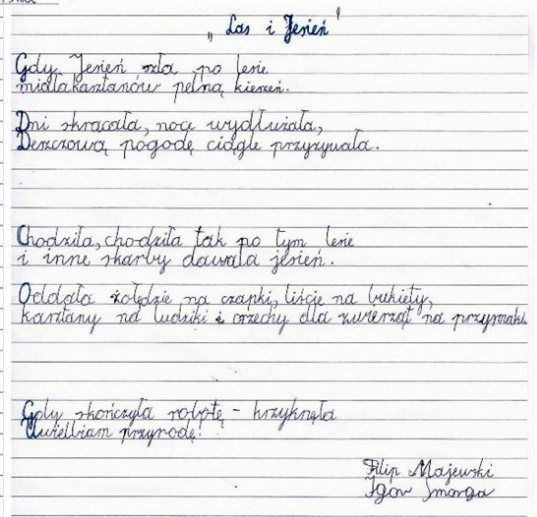 „Las i Jesień"
Gdy Jesień szła po lesie
miała kasztanów pełną kieszeń.
Dni skracała, noce wydłużała,
Deszczową pogodę ciągle przyzywała.
Chodziła, chodziła tak po tym lesie
i inne skarby dawała jesień.
Oddała żołędzie na czapki, liście na bukiety,
kasztany na ludziki i orzechy dla zwierząt na przysmaki.
Gdy skończyła robotę – krzyknęła
Uwielbiam przyrodę!
Filip Majewski
Igor Smorga